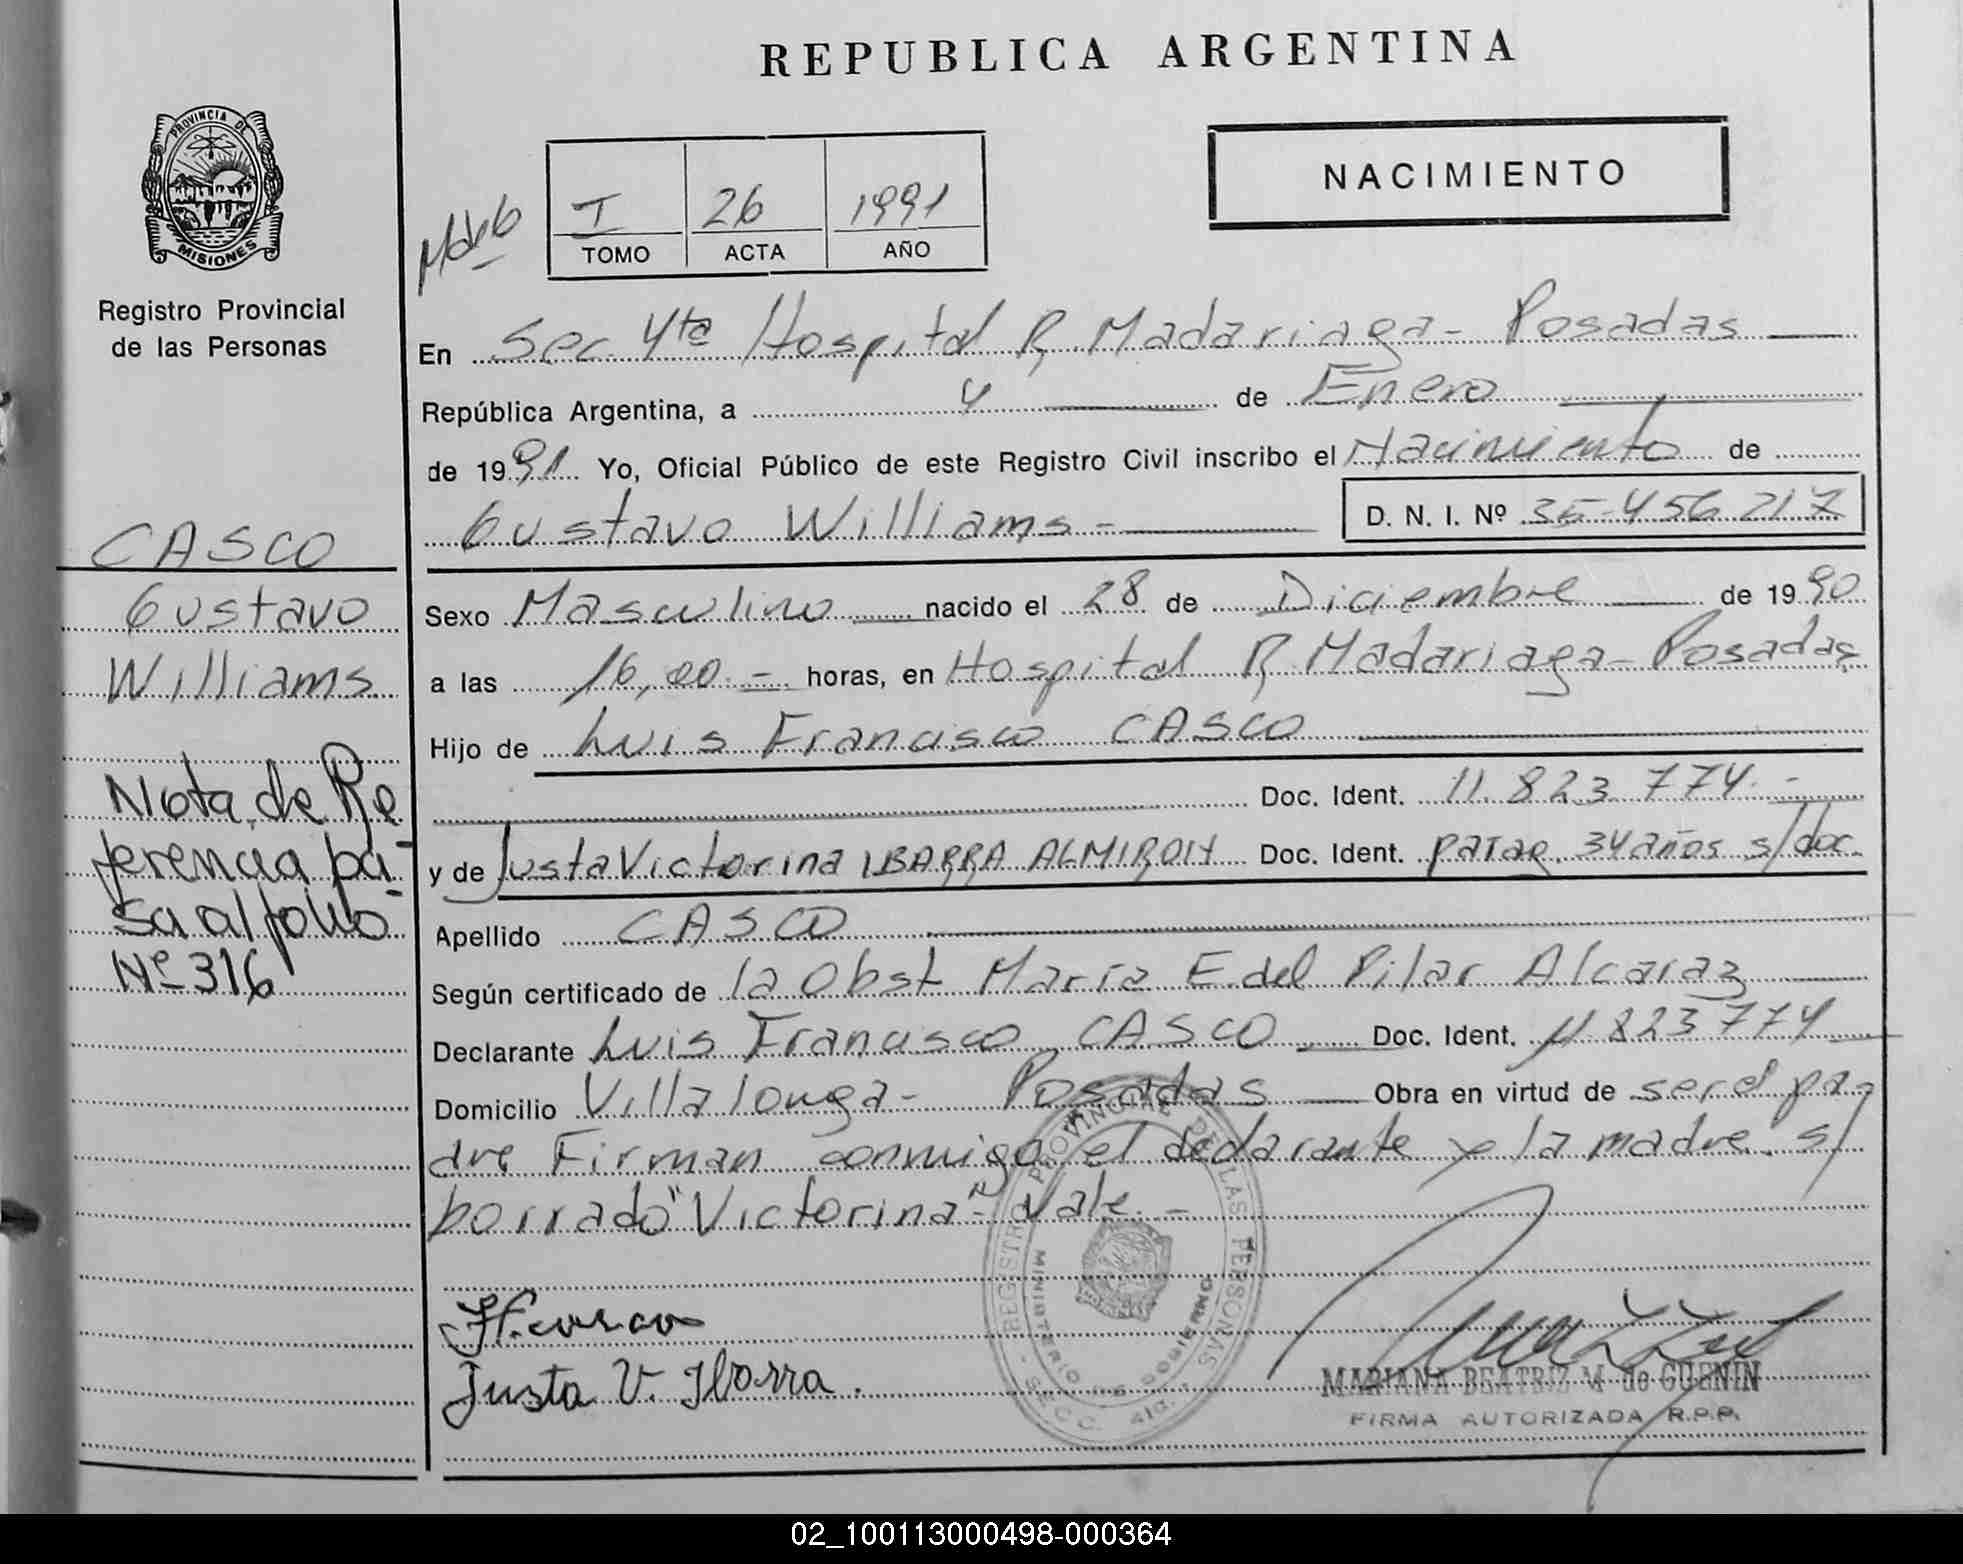 REPUBLICA ARGENTINA
PROVINCIA DE
MISIONES
Registro Provincial
de las Personas
NACIMIENTO
I 26 1991
TOMO ACTA AÑO
En Sec 4ta Hospital R Madariaga - Posadas
República Argentina, a 4 de Enero
de 1991 Yo, Oficial Público de este Registro Civil inscribo el Nacimiento de
Gustavo Williams - D. N. I. Nº 35-456 217
CASCO
Gustavo
Williams
Nota de Re
ferencia pa-
sa al folio
Nº 316
Sexo Masculino nacido el 28 de Diciembre de 1990
a las 16,00.- horas, en Hospital R Madariaga - Posadas
Hijo de Luis Francisco CASCO
Doc. Ident. 11.823.774.-
y de Justa Victorina IBARRA ALMIRON Doc. Ident. parag. 34 años s/doc.
Apellido CASCO
Según certificado de la Obst María E. del Pilar Alcaraz
Declarante Luis Francisco CASCO Doc. Ident. 11.823774
Domicilio Villalonga - Posadas Obra en virtud de ser el pa
dre Firman conmigo el declarante y la madre. s/
borrado "Victorina" Vale.-
Justa V. Ibarra.
REGISTRO PROVINCIAL DE LAS PERSONAS
MINISTERIO DE GOBIERNO
SECC. 4ta.
MARIANA BEATRIZ M de GUENIN
FIRMA AUTORIZADA R.P.P.
02_100113000498-000364